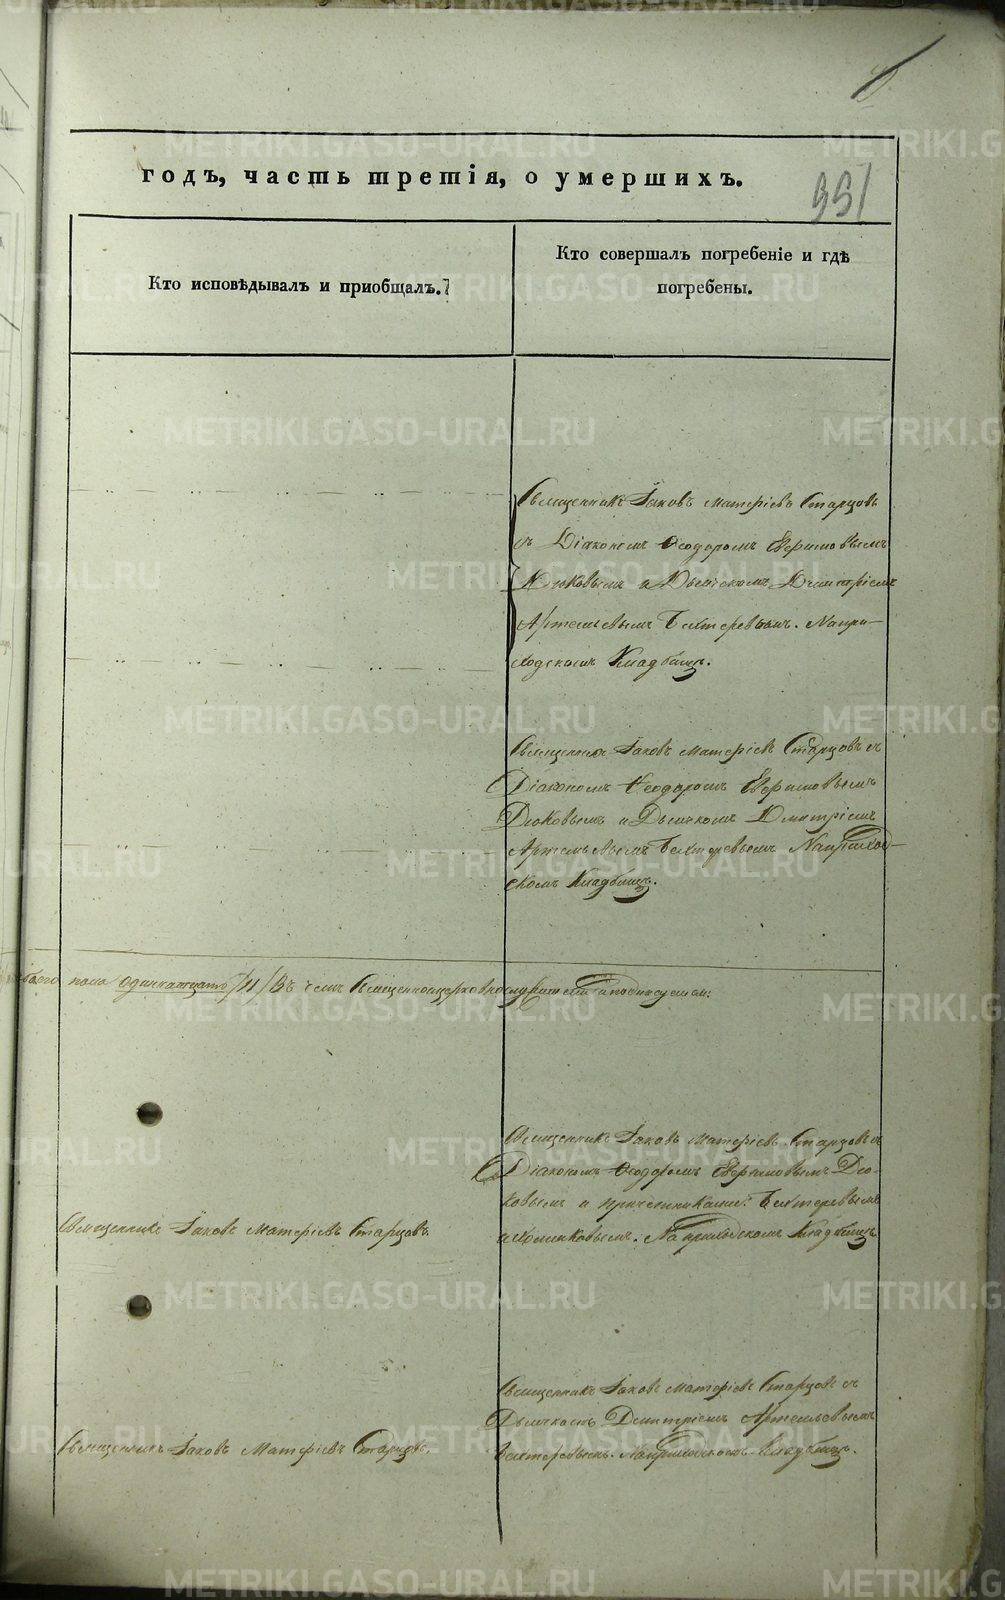 годъ, часть третія, о умершихъ.
991
Кто исповѣдывалъ и приобщалъ.
Кто совершалъ погребеніе и гдѣ
погребены.
Священникъ Іаковъ Матѳіевъ Старцовъ
съ Діакономъ Ѳеодоромъ Ефимовымъ
и Дьячкомъ Димитріемъ
Артемьевымъ Бехтеревымъ. На при-
ходскомъ Кладбищѣ.
Священникъ Іаковъ Матѳіевъ Старцовъ съ
Діакономъ Ѳеодоромъ Ефимовымъ
Дюковымъ и Дьячкомъ Дмитріемъ
Артемьевымъ Бехтеревымъ На приход-
скомъ Кладбищѣ.
пола одиннатцать /11/ Въ чемъ Священноцерковнослужители и подписуемся:
Священникъ Іаковъ Матѳіевъ Старцовъ съ
Діакономъ Ѳеодоромъ Ефимовымъ Дю-
ковымъ и причетниками: Бехтеревымъ
На приходскомъ Кладбищѣ
Священникъ Іаковъ Матѳіевъ Старцовъ.
Священникъ Іаковъ Матѳіевъ Старцовъ съ
Дьячкомъ Димитріемъ Артемьевымъ
Бехтеревымъ. На приходскомъ Кладбищѣ.
Священникъ Іаковъ Матѳіевъ Старцовъ.
METRIKI.GASO-URAL.RU